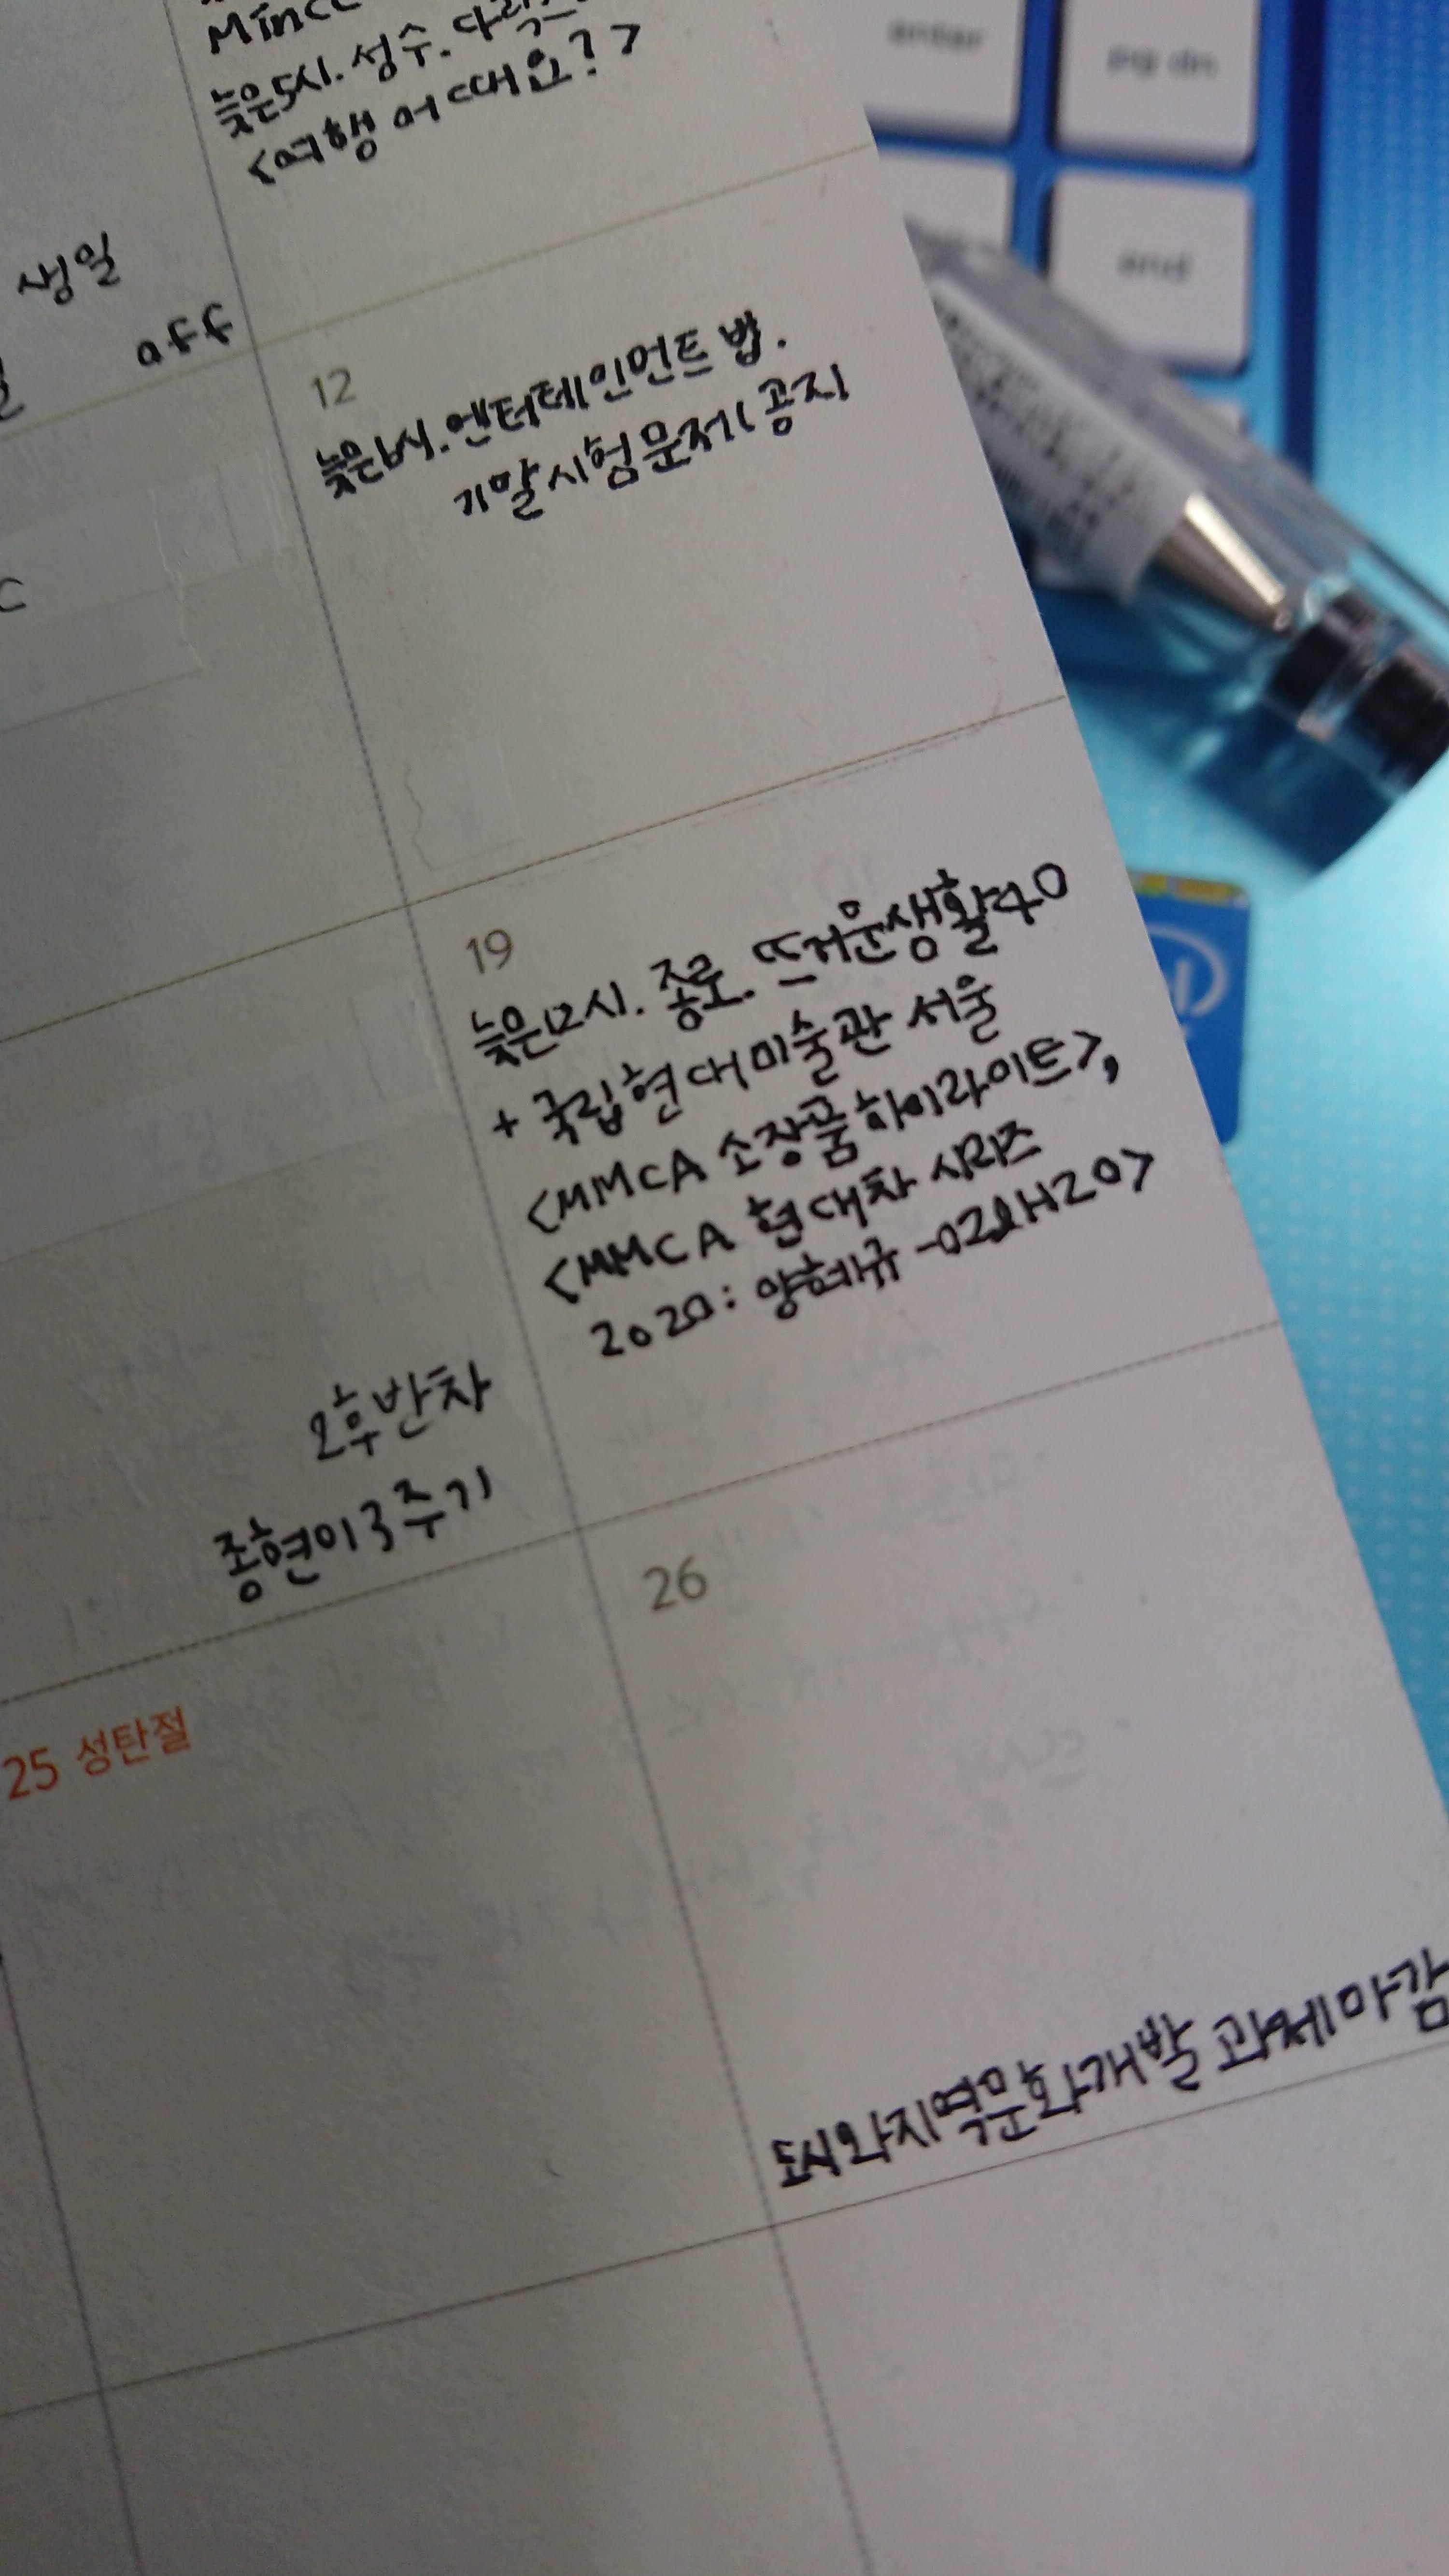 늦은5시. 성수.
<여행 어때요?>
생일
off
12
늦은6시. 엔터테인먼트 법.
기말시험문제 공지
19
늦은12시. 종로. 뜨거운생활40
+ 국립현대미술관 서울
<MMCA 소장품하이라이트>,
<MMCA 현대차 시리즈
2020: 양혜규 -O2&H2O>
오후반차
종현이3주기
25 성탄절
26
도시와지역문화개발 과제마감
enter
pg dn
end